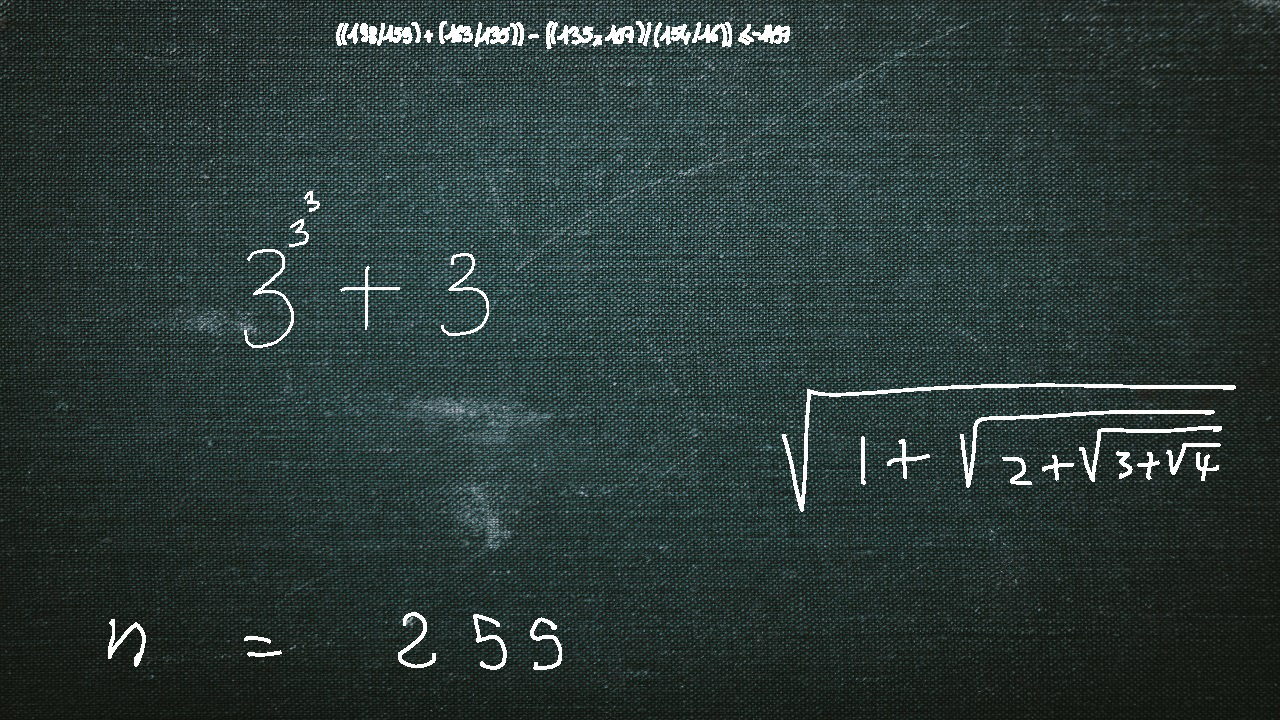 ((198/159)+(163/130))-((135×107)/(154/16))≤-1197
3^3^3 + 3
√(1+√(2+√(3+√4)))
n = 259